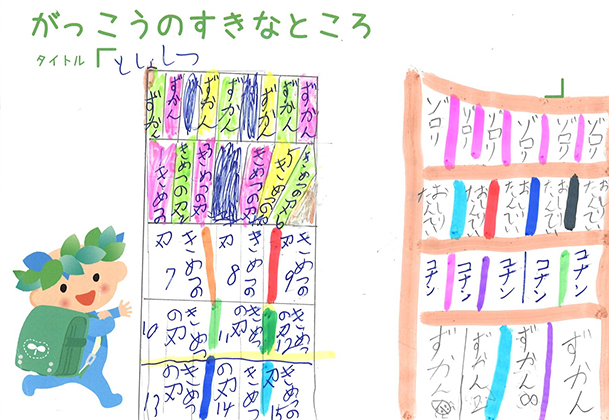 がっこうのすきなところ
タイトル「としょしつ
」
ずかん ずかん ずかん ずかん ずかん ずかん
きめつの刃 きめつの刃 きめつの刃 きめつの刃
きめつの刃7 きめつの刃8 きめつの刃9
きめつの刃10 きめつの刃11 きめつの刃12
きめつの刃13 きめつの刃14 きめつの刃15
ゾロリ ゾロリ ゾロリ ゾロリ ゾロリ
おしりたんてい おしりたんてい おしりたんてい おしりたんてい おしりたんてい
コナン コナン コナン コナン コナン
ずかん ずかん ずかん8 ずかん